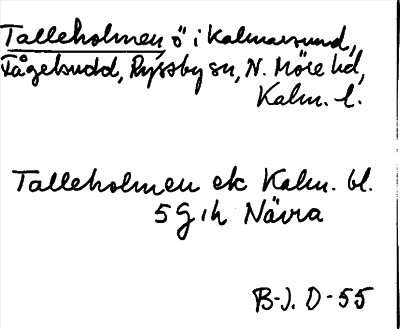 Talleholmen ö i Kalmarsund,
Fågeludd, Ryssby sn, N. Möre hd,
Kalm. l.
Talleholmen ek Kalm. bl.
5 G ih Nävra
B-J. D-55